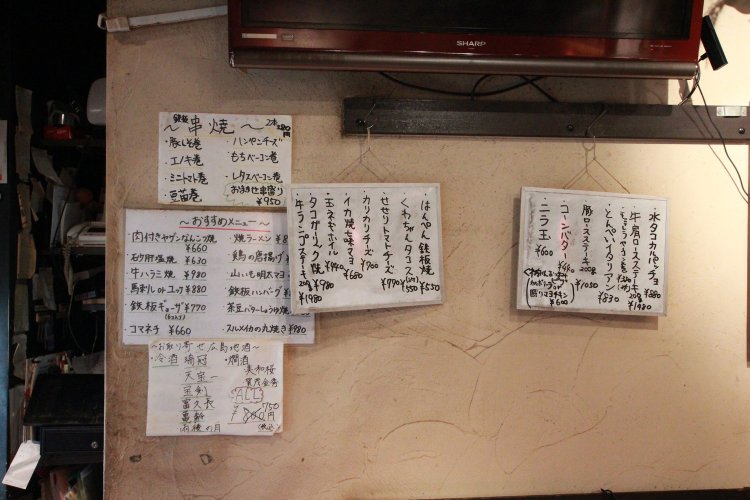 SHARP
鉄板
～串焼～ 2本280円
・豚しそ巻
・エノキ巻
・ミニトマト巻
・豆苗巻
・ハンペンチーズ
・もちベーコン巻
・レタスベーコン巻
おまかせ串盛り
¥950
～おすすめメニュー～
・肉付きヤゲンなんこつ焼
¥660
・砂肝塩焼 ¥630
・牛ハラミ焼 ¥980
・馬刺しのユッケ ¥880
・鉄板ギョーザ ¥770
・コマネチ ¥660
・焼ラーメン
・鶏の唐揚
・山いも明太マヨ
・鉄板ハンバーグ
・茶豆バターしょうゆ焼
・スルメイカの丸焼き ¥980
～お取り寄せ広島地酒～
・冷酒 瑞冠
天宝一
宝剣
富久長
亀齢
雨後の月
・燗酒
美和桜
賀茂金秀
ALL
750円
(税込)
・はんぺん鉄板焼 ¥530
・くわちゃんタコス ¥550
・せせりトマトチーズ ¥770
・カリカリチーズ ¥700
・イカ焼味マヨ ¥680
・玉ネギホイル ¥440
・タコガーリック焼 ¥980
・牛ランプステーキ 200g ¥1980
・水タコカルパッチョ ¥880
・牛肩ロースステーキ 200g ¥1480
・とんぺいイタリアン ¥830
・豚ロースステーキ 200g ¥1050
・コーンバター ¥440
・ニラ玉 ¥600